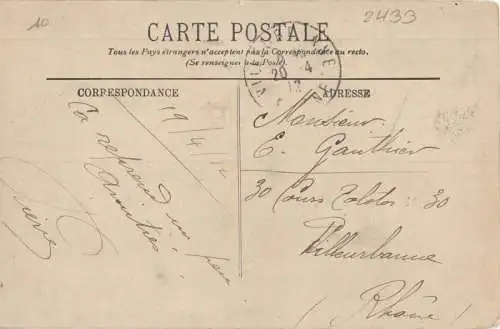 10
2433
CARTE POSTALE
Tous les Pays étrangers n'acceptent pas la Correspondance au recto.
(Se renseigner à la Poste).
20 - 4
12
CORRESPONDANCE
ADRESSE
19/4/12
Ca reprend un peu
Amitiés
Pierre
Monsieur
E. Gauthier
30 Cours Tolstoi 30
Villeurbanne
(Rhône)